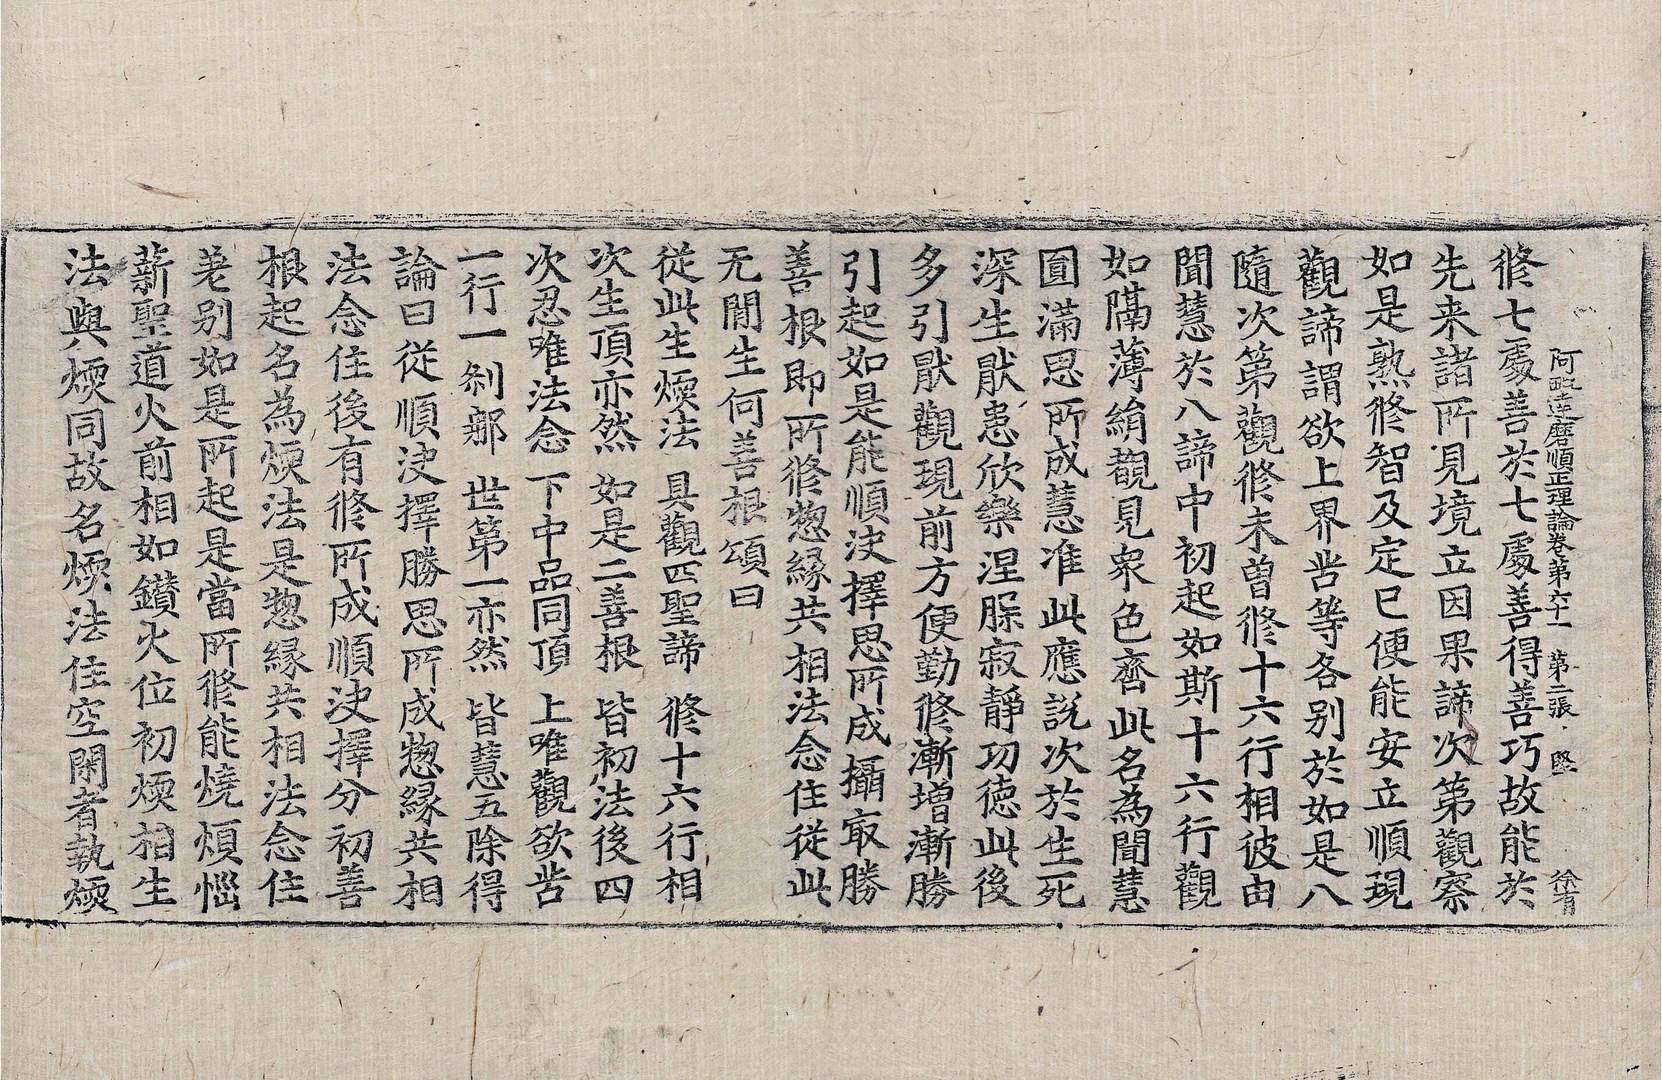 阿毗達磨順正理論卷第六十一 第二張 堅 徐有
修七處善於七處善得善巧故能於
先来諸所見境立因果諦次第觀察
如是熟修智及定已便能安立順現
觀諦謂欲上界苦等各别於如是八
隨次第觀修未曽修十六行相彼由
聞慧於八諦中初起如斯十六行觀
如隔薄絹覩見衆色齊此名為聞慧
圓滿思所成慧准此應說次於生死
深生猒患欣樂涅槃寂靜功德此後
多引猒觀現前方便勤修漸增漸勝
引起如是能順決擇思所成攝㝡勝
善根即所修惣緣共相法念住從此
无間生何善根頌曰
從此生煗法 具觀四聖諦 修十六行相
次生頂亦然 如是二善根 皆初法後四
次忍唯法念 下中品同頂 上唯觀欲苦
一行一刹那 世第一亦然 皆慧五除得
論曰從順決擇勝思所成惣緣共相
法念住後有修所成順決擇分初善
根起名為煗法是惣緣共相法念住
差别如是所起是當所修能燒煩惱
薪聖道火前相如鑽火位初煗相生
法與煗同故名煗法住空閑者執煗